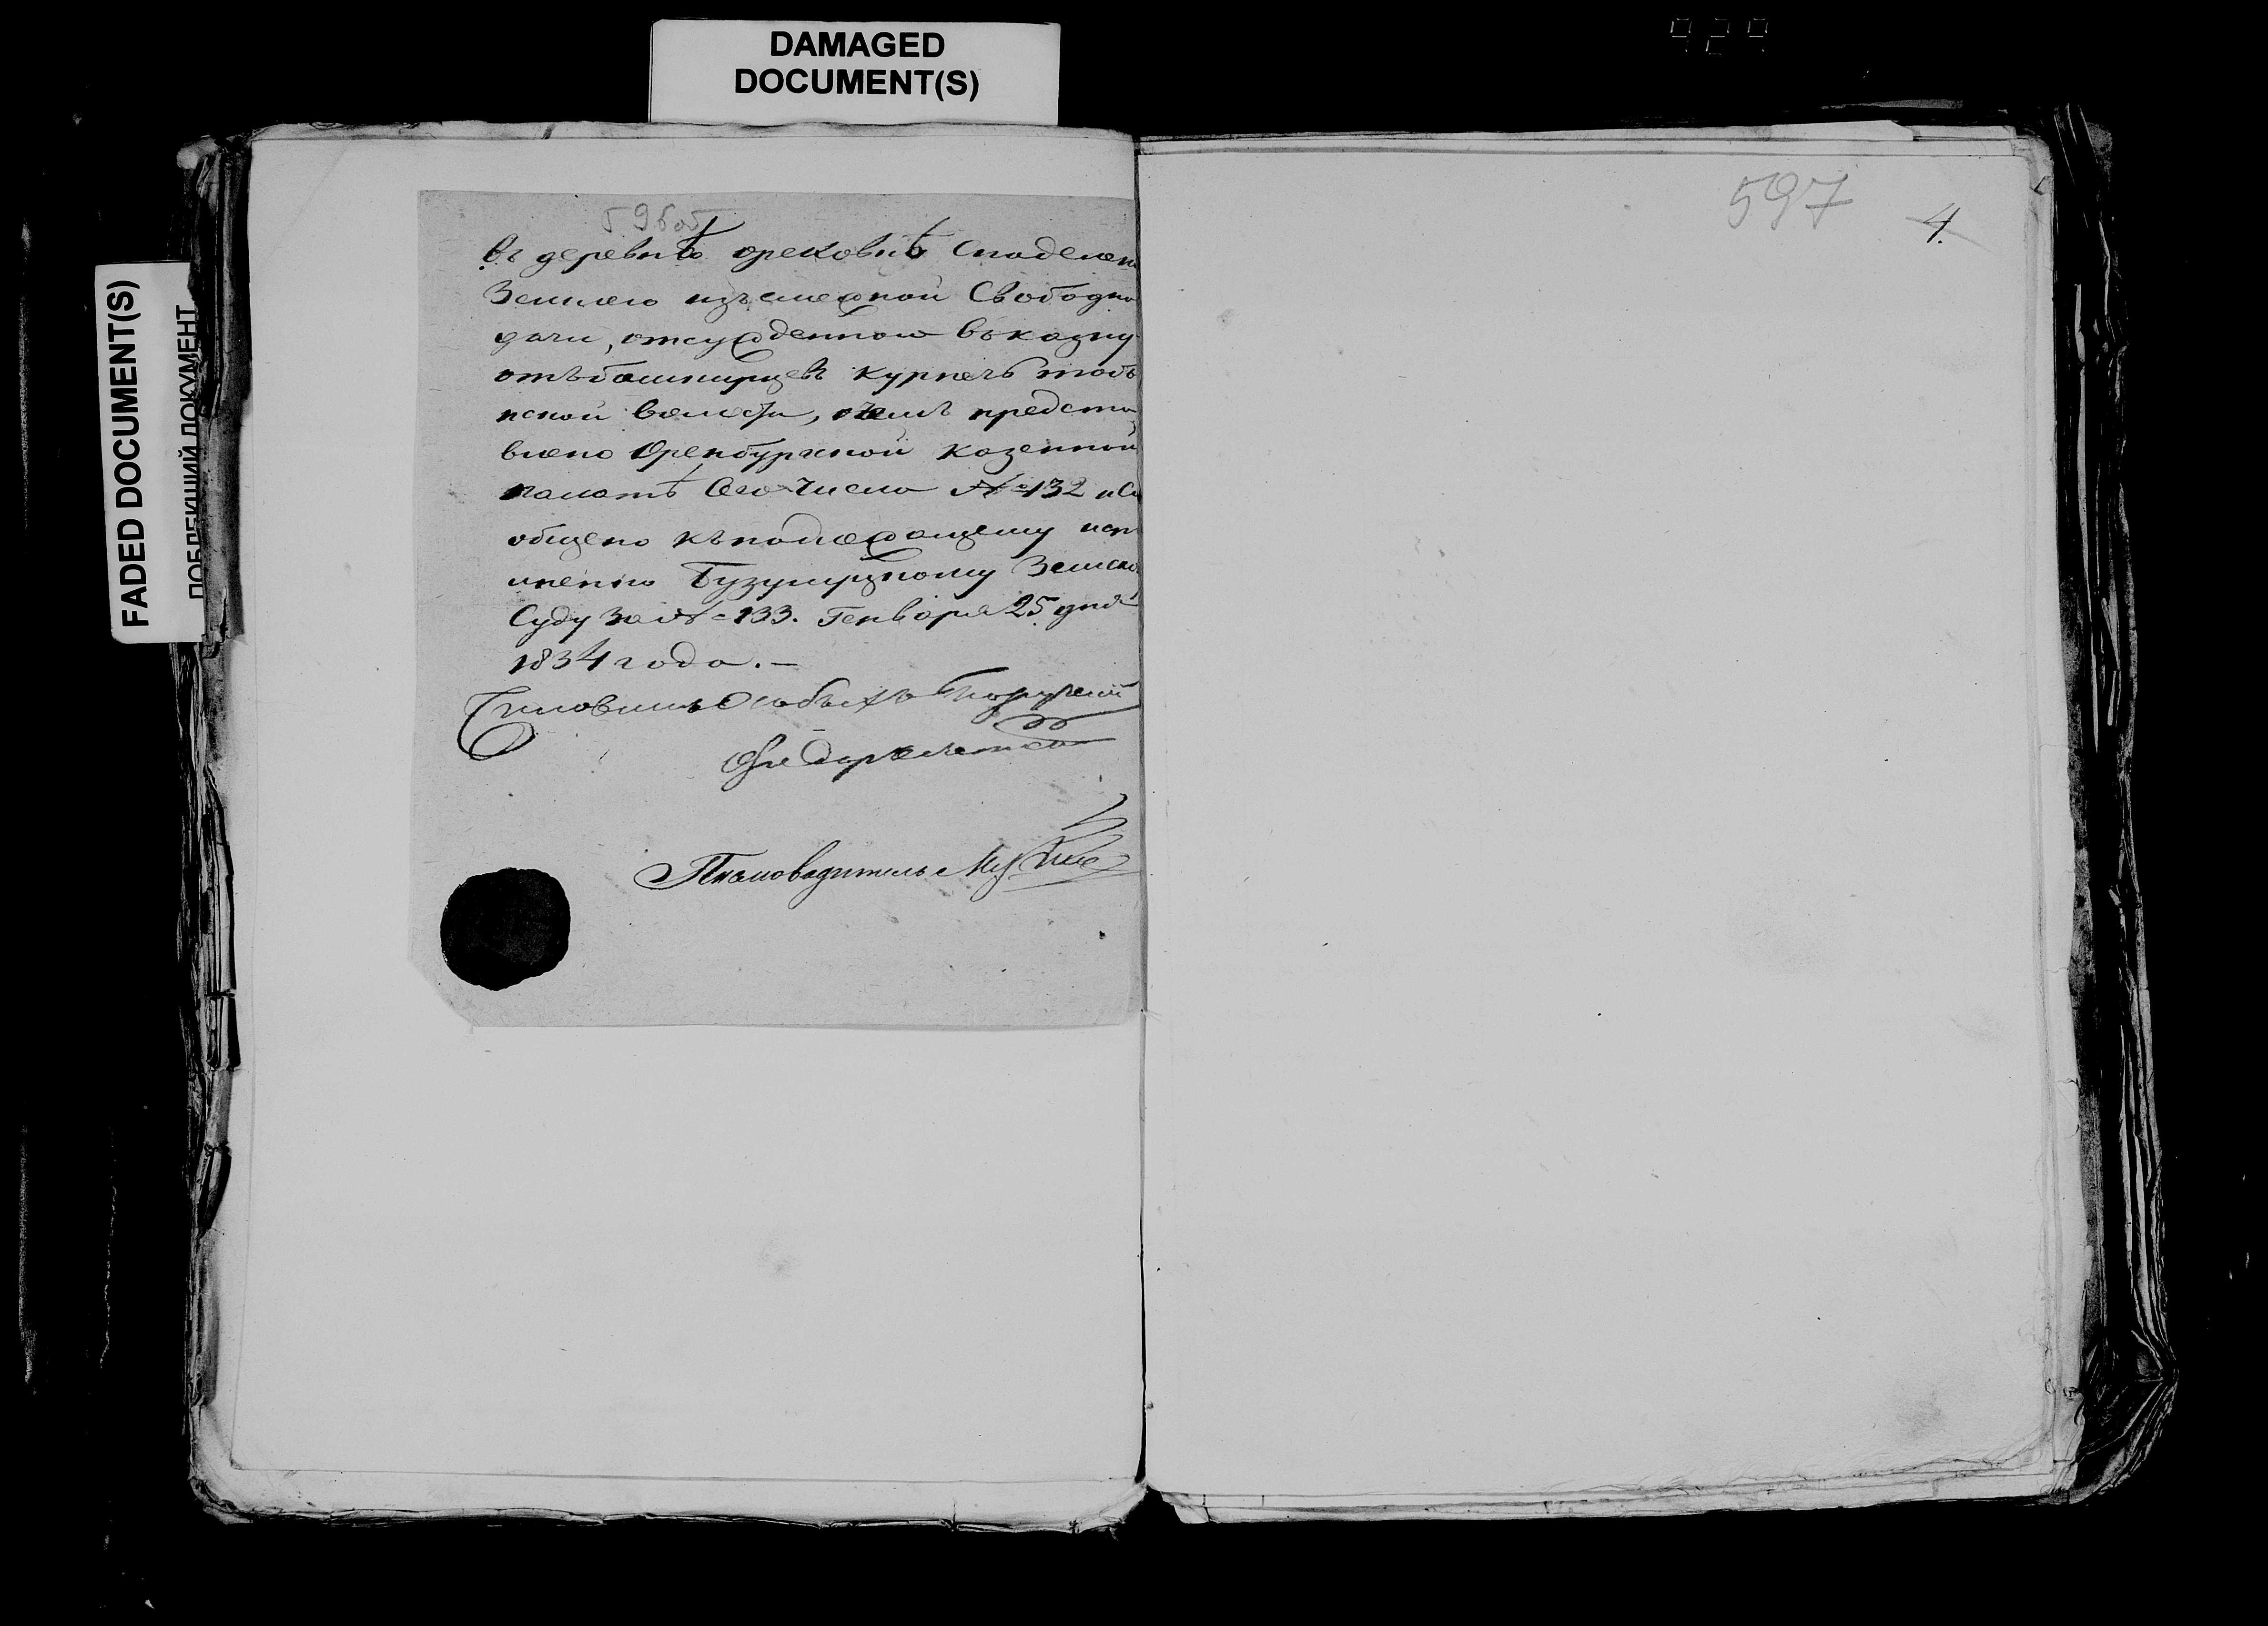 DAMAGED
DOCUMENT(S)
FADED DOCUMENT(S)
ПОБЛЕКШИЙ ДОКУМЕНТ
596 об
въ деревнѣ ореховкѣ снаделен
Землею изъ смежной Свободно
дачи, отсужденною въ казну
отъ башкирцевъ курпечь таб
нской волости, о чемъ предста
влено Оренбургской казенной
палатѣ Сего Числа № 132 и Со
общено къ надлежащему испо
лнению Бузулуцкому Земско
Суду за № 133. Генваря 25 дня
1834 года. —
Чиновникъ Особыхъ Поручений
Письмоводитель
597
4.